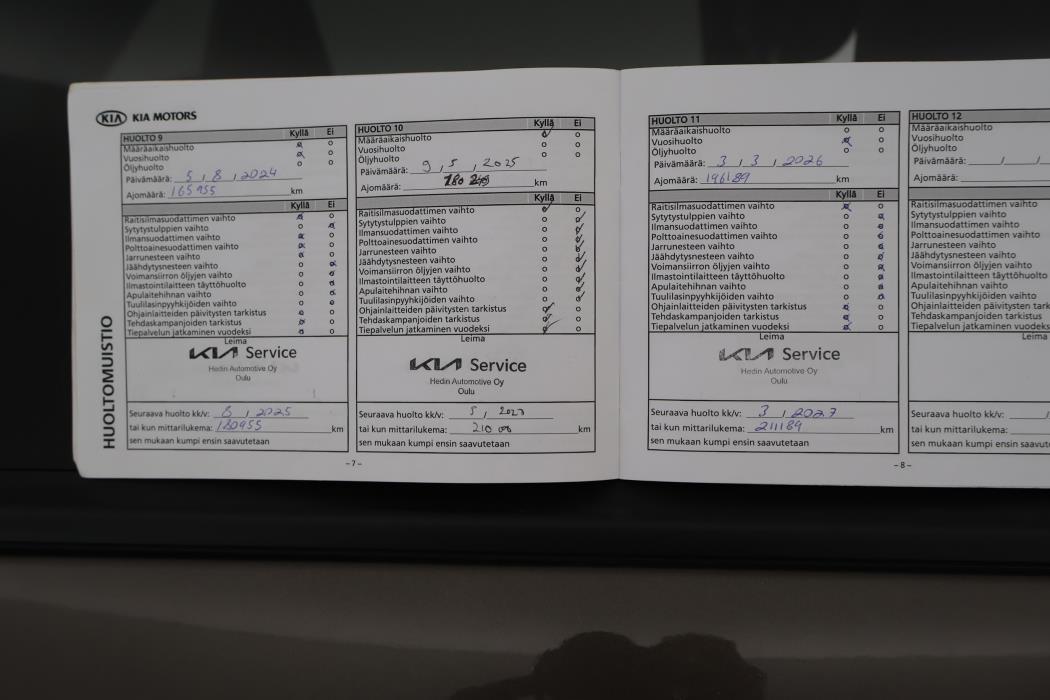 KIA KIA MOTORS
HUOLTOMUISTIO
HUOLTO 9 Kyllä Ei
Määräaikaishuolto
Vuosihuolto
Öljyhuolto
Päivämäärä: 5 / 8 / 2024
Ajomäärä: 165955 km
Kyllä Ei
Raitisilmasuodattimen vaihto
Sytytystulppien vaihto
Ilmansuodattimen vaihto
Polttoainesuodattimen vaihto
Jarrunesteen vaihto
Jäähdytysnesteen vaihto
Voimansiirron öljyjen vaihto
Ilmastointilaitteen täyttöhuolto
Apulaitehihnan vaihto
Tuulilasinpyyhkijöiden vaihto
Ohjainlaitteiden päivitysten tarkistus
Tehdaskampanjoiden tarkistus
Tiepalvelun jatkaminen vuodeksi
Leima
KIA Service
Hedin Automotive Oy
Oulu
Seuraava huolto kk/v: 8 / 2025
tai kun mittarilukema: 180955 km
sen mukaan kumpi ensin saavutetaan
HUOLTO 10 Kyllä Ei
Määräaikaishuolto
Vuosihuolto
Öljyhuolto
Päivämäärä: 9 / 5 / 2025
Ajomäärä: 180 km
Kyllä Ei
Raitisilmasuodattimen vaihto
Sytytystulppien vaihto
Ilmansuodattimen vaihto
Polttoainesuodattimen vaihto
Jarrunesteen vaihto
Jäähdytysnesteen vaihto
Voimansiirron öljyjen vaihto
Ilmastointilaitteen täyttöhuolto
Apulaitehihnan vaihto
Tuulilasinpyyhkijöiden vaihto
Ohjainlaitteiden päivitysten tarkistus
Tehdaskampanjoiden tarkistus
Tiepalvelun jatkaminen vuodeksi
Leima
KIA Service
Hedin Automotive Oy
Oulu
Seuraava huolto kk/v: 5 / 2027
tai kun mittarilukema: 210 km
sen mukaan kumpi ensin saavutetaan
-7-
HUOLTO 11 Kyllä Ei
Määräaikaishuolto
Vuosihuolto
Öljyhuolto
Päivämäärä: 3 / 3 / 2026
Ajomäärä: 196189 km
Kyllä Ei
Raitisilmasuodattimen vaihto
Sytytystulppien vaihto
Ilmansuodattimen vaihto
Polttoainesuodattimen vaihto
Jarrunesteen vaihto
Jäähdytysnesteen vaihto
Voimansiirron öljyjen vaihto
Ilmastointilaitteen täyttöhuolto
Apulaitehihnan vaihto
Tuulilasinpyyhkijöiden vaihto
Ohjainlaitteiden päivitysten tarkistus
Tehdaskampanjoiden tarkistus
Tiepalvelun jatkaminen vuodeksi
Leima
KIA Service
Hedin Automotive Oy
Oulu
Seuraava huolto kk/v: 3 / 2027
tai kun mittarilukema: 211189 km
sen mukaan kumpi ensin saavutetaan
-8-
HUOLTO 12
Määräaikaishuolto
Vuosihuolto
Öljyhuolto
Päivämäärä: / /
Ajomäärä:
Raitisilmasuodattimen vaihto
Sytytystulppien vaihto
Ilmansuodattimen vaihto
Polttoainesuodattimen vaihto
Jarrunesteen vaihto
Jäähdytysnesteen vaihto
Voimansiirron öljyjen vaihto
Ilmastointilaitteen täyttöhuolto
Apulaitehihnan vaihto
Tuulilasinpyyhkijöiden vaihto
Ohjainlaitteiden päivitysten
Tehdaskampanjoiden tarkistus
Tiepalvelun jatkaminen vuodeks
Leima
Seuraava huolto kk/v: /
tai kun mittarilukema:
sen mukaan kumpi ensin saavute